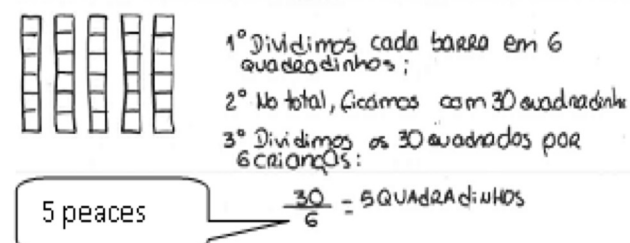 1º Dividimos cada barra em 6
quadradinhos;
2º No total, ficamos com 30 quadradinho
3º Dividimos os 30 quadrados por
6 crianças:
30/6 = 5 QUAdRAdiNHOS
5 peaces